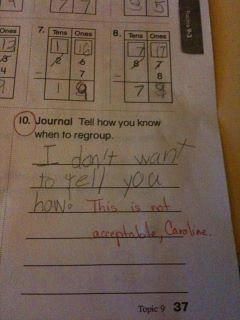 7. Tens Ones 8. Tens Ones
13 1 16 7 17
8 2 6 8 7
4 - 7 - 8
9 1 9 7 9
10. Journal Tell how you know
when to regroup.
I don't want
to tell you
how. This is not
acceptable, Caroline.
Topic 9 37